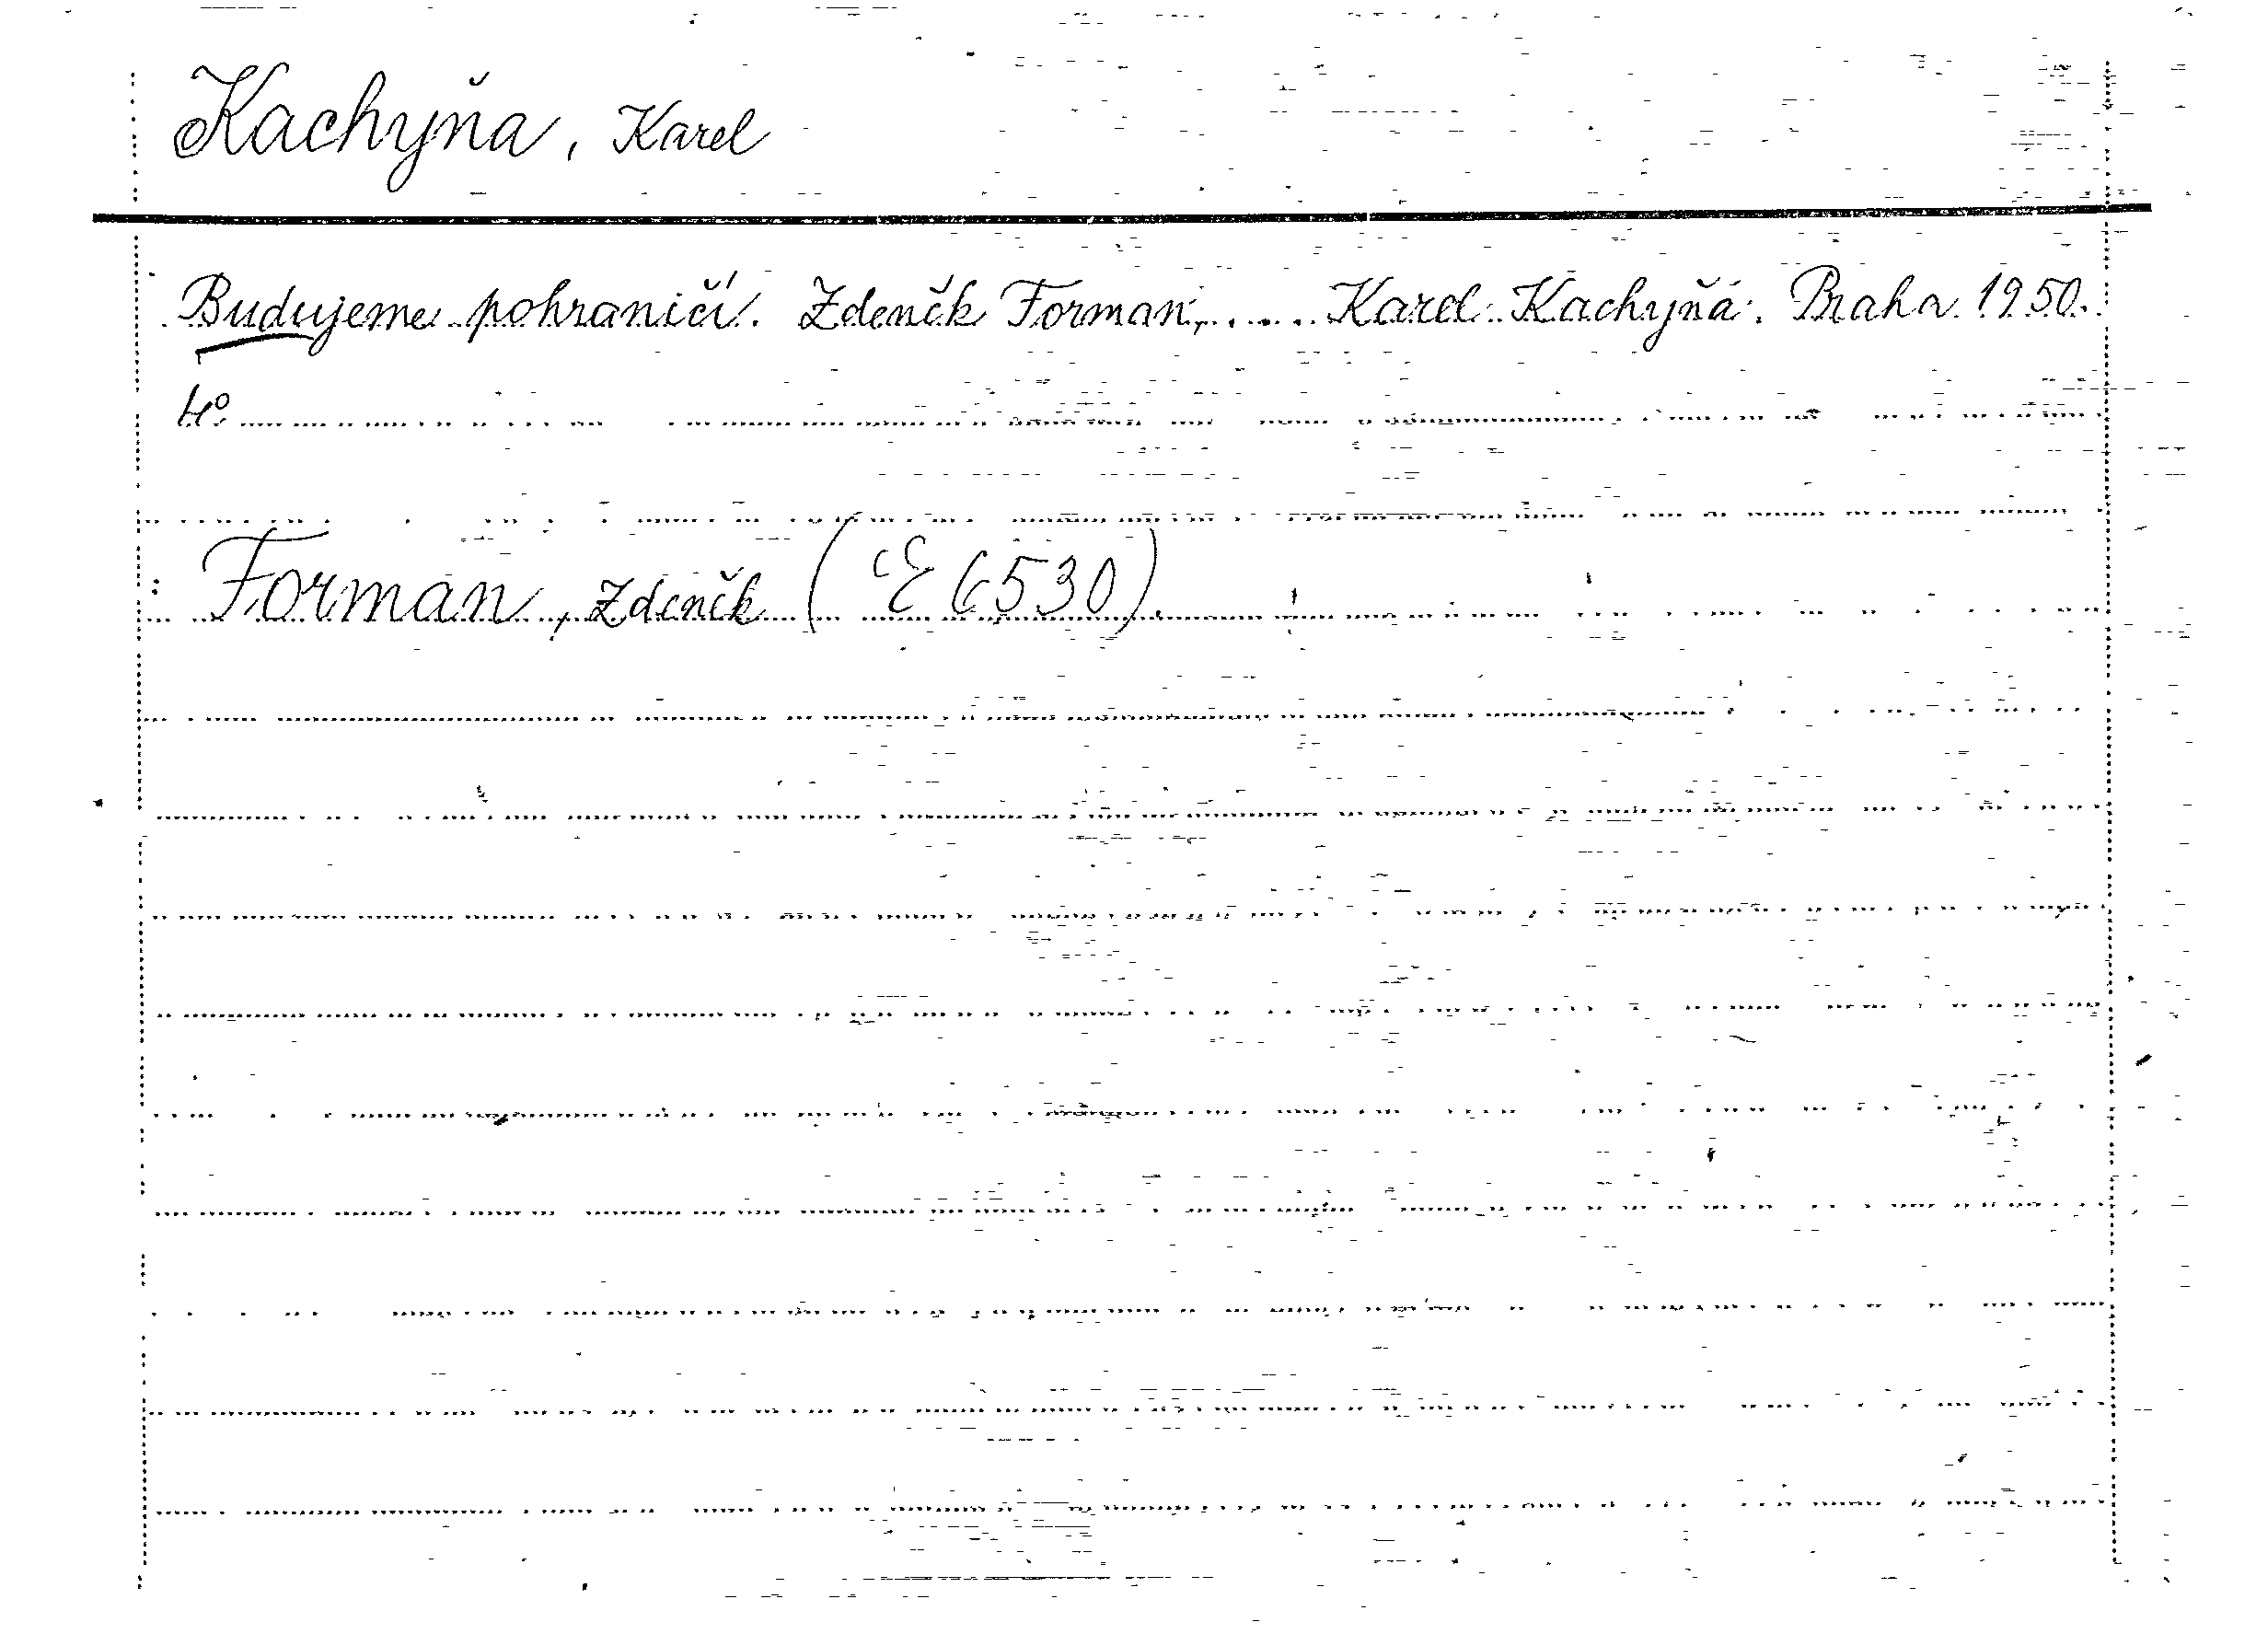 Kachyňa, Karel
Budujeme pohraničí. Zdeněk Forman, .... Karel Kachyňa. Praha 1950.
4°.
Forman, Zdeněk (E 6530).